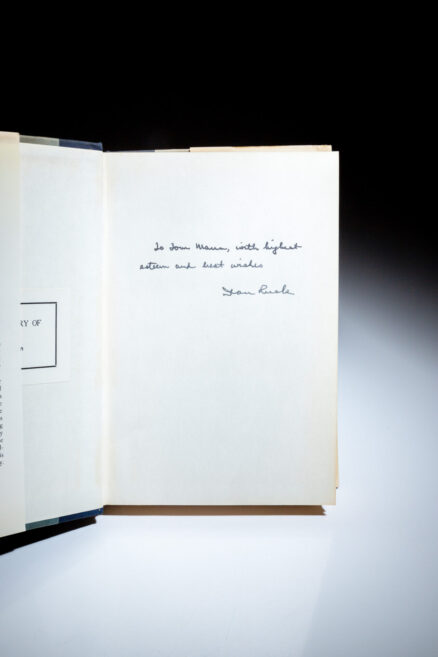 RY OF
To Tom Mann, with highest
esteem and best wishes
Dean Rusk